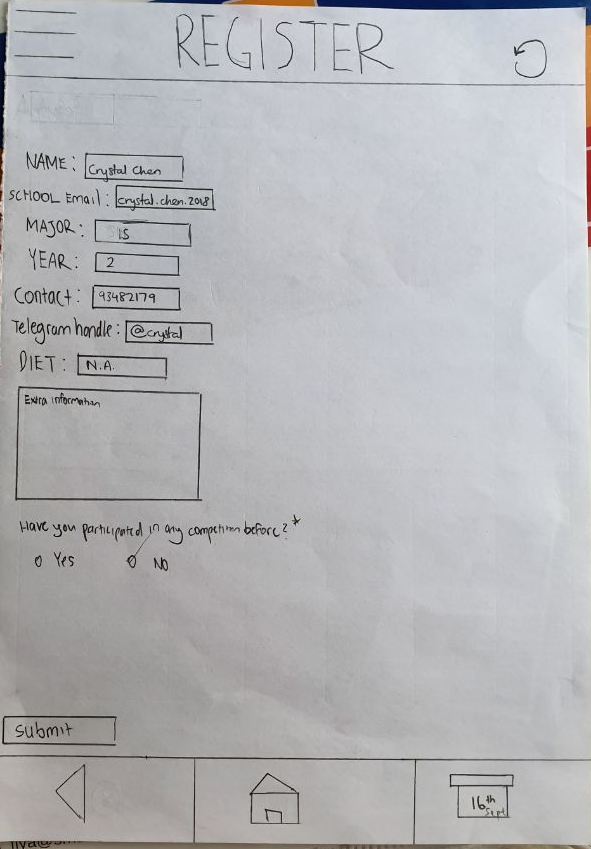 REGISTER
NAME: Crystal Chen
SCHOOL Email: crystal.chen.2018
MAJOR: IS
YEAR: 2
Contact: 93482179
Telegram handle: @crystal
DIET: N.A.
Extra information
Have you participated in any competition before?*
Yes NO
submit
16th
Sept